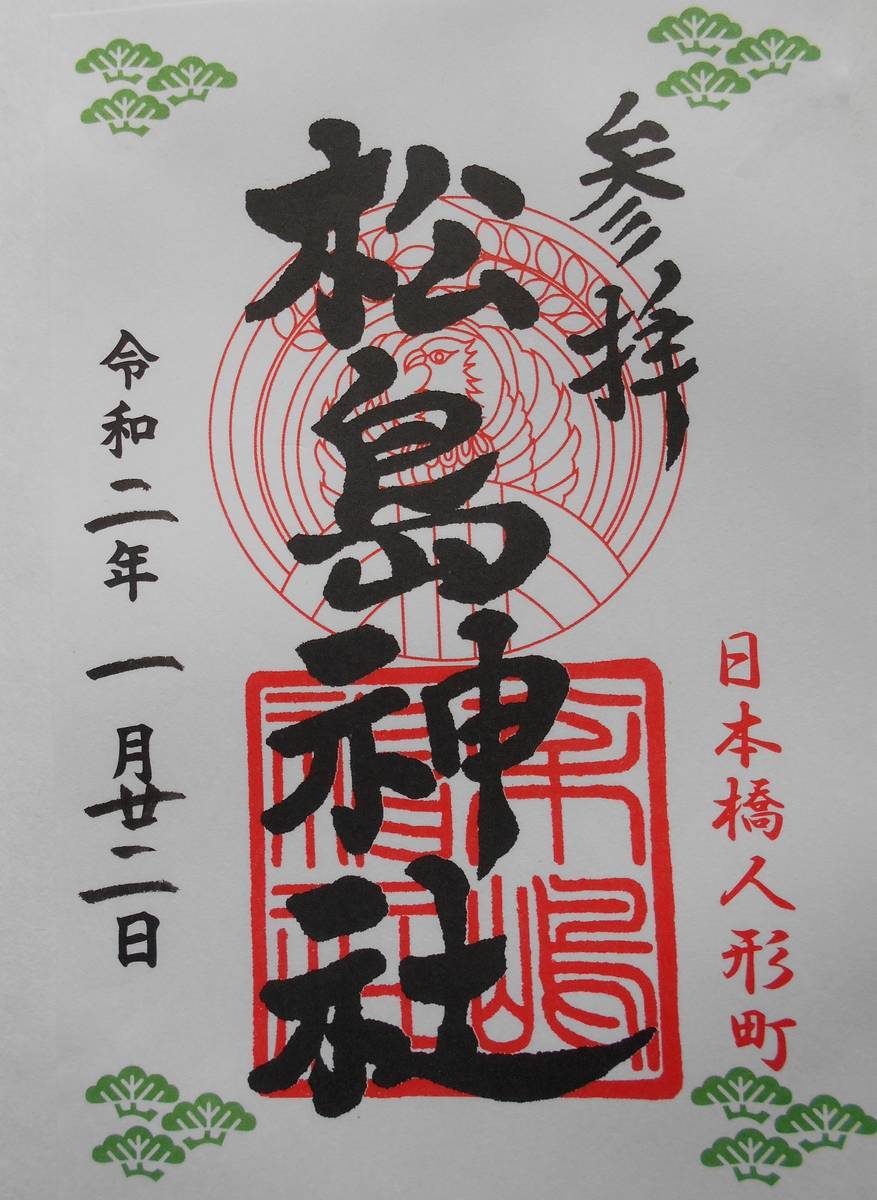 参拝
日本橋人形町
松島神社
令和二年 一月廿二日